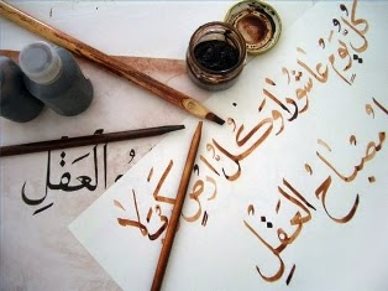 كُلُّ يَوْمٍ عَاشُورَا وَ كُلُّ أَرْضٍ كَرْبَلَا
مِصْبَاحُ العَقْلِ
العَقْلِ